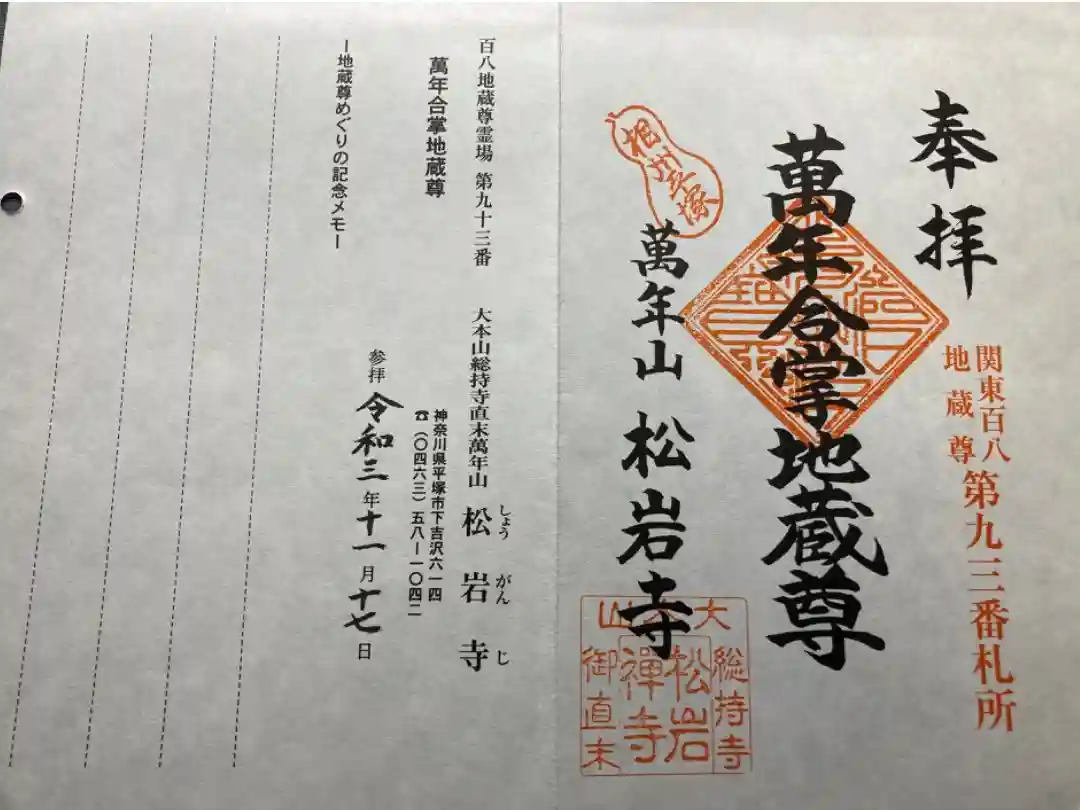 奉拝
関東百八
地蔵尊
第九三番札所
萬年合掌地蔵尊
相州平塚
萬年山 松岩寺
大本山
総持寺
御直末
松岩
禅寺
百八地蔵尊霊場 第九十三番 大本山総持寺直末萬年山 松岩寺
しょうがんじ
萬年合掌地蔵尊
神奈川県平塚市下吉沢六一四
☎(〇四六三)五八ー一〇四二
参拝 令和三年十一月十七日
ー地蔵尊めぐりの記念メモー